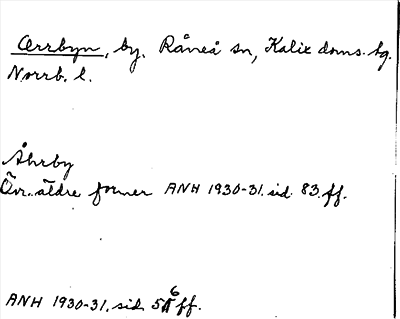 Orrbyn, by. Råneå sn, Kalix doms. hg.
Norrb. l.
Åhrby
Övr. äldre former ANH 1930-31. sid. 83. ff.
ANH 1930-31. sid. 56 ff.